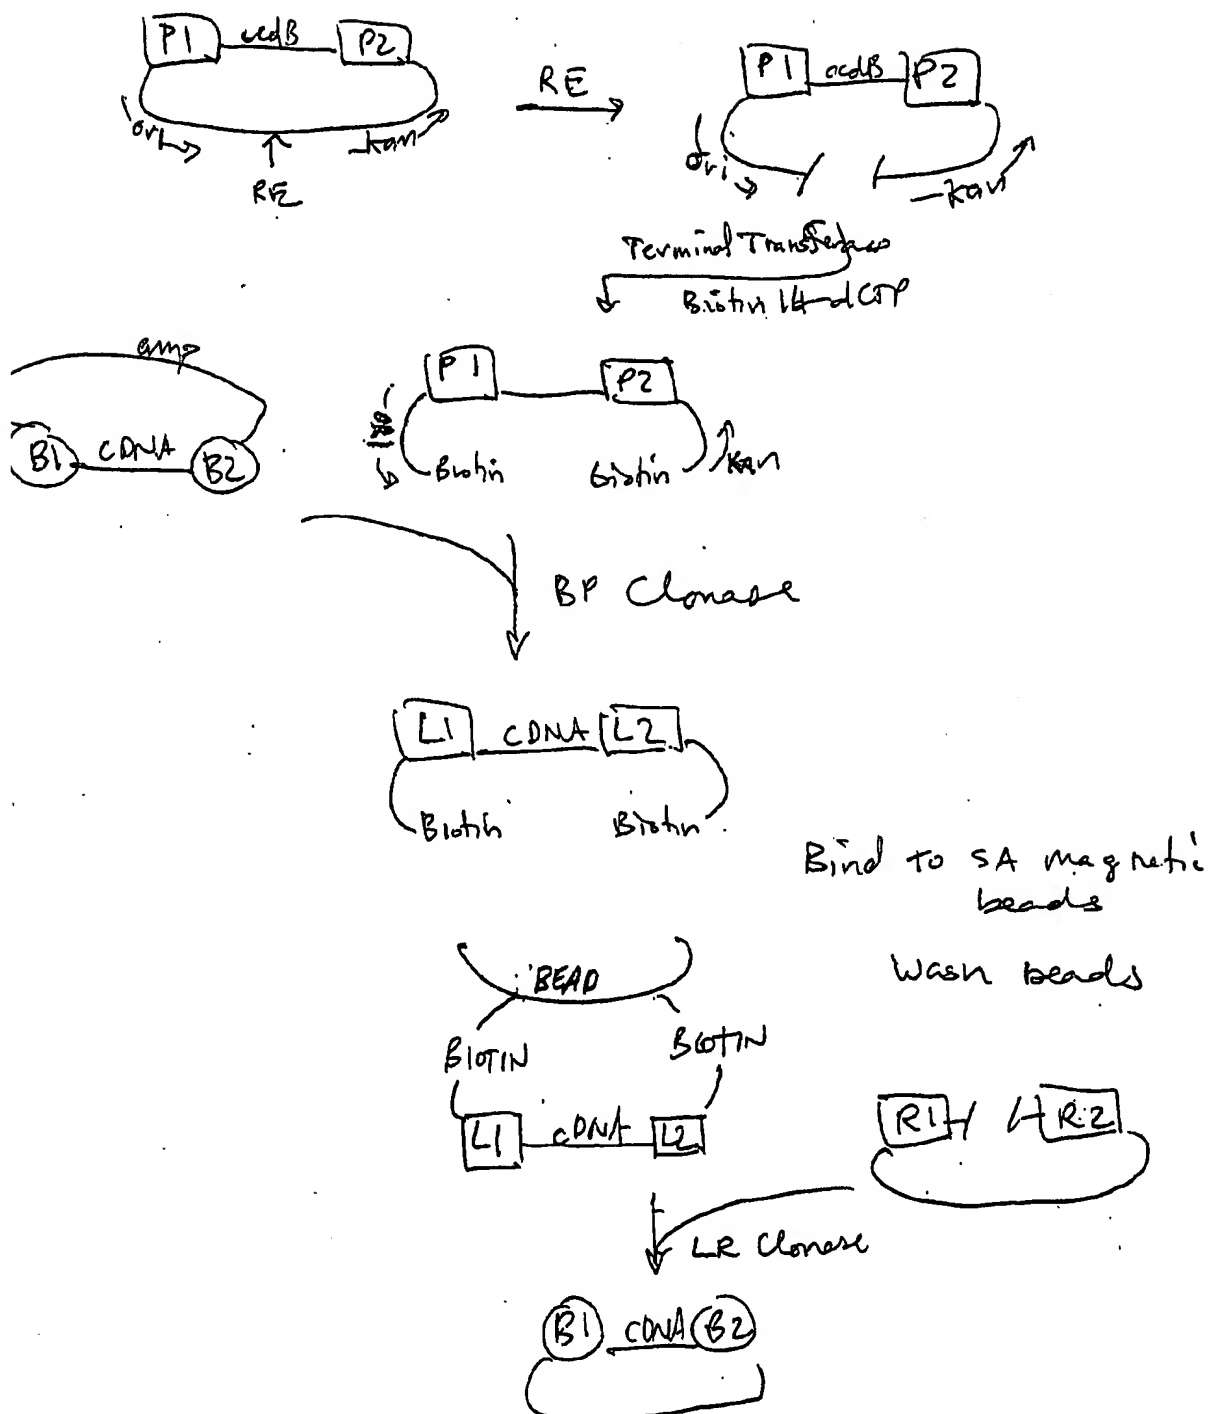 P1 ccdB P2
ori
kan
RE
RE
P1 ccdB P2
ori
kan
Terminal Transferase
Biotin 14-dCTP
amp
B1 cDNA B2
P1 P2
ORI
Biotin Biotin
Kan
BP Clonase
L1 CDNA L2
Biotin Biotin
Bind to SA magnetic
beads
Wash beads
BEAD
BIOTIN BIOTIN
L1 cDNA L2
R1 R2
LR Clonase
B1 cDNA B2